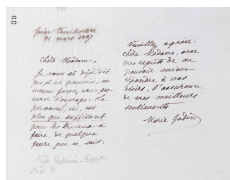 89
Guise Familistère
21 mars 1897
Chère Madame,
Je vous ai déjà dit
que je ne pourrais, en
aucune façon, vous pro-
curer d'ouvrage. Le
personnel ici, est
plus que suffisant
pour les travaux à
faire, de quelque
genre que ce soit.
Veuillez agréer,
chère Madame, avec
mes regrets de ne
pouvoir mieux
répondre à vos
désirs, l'assurance
de mes meilleurs
sentiments
Marie Godin